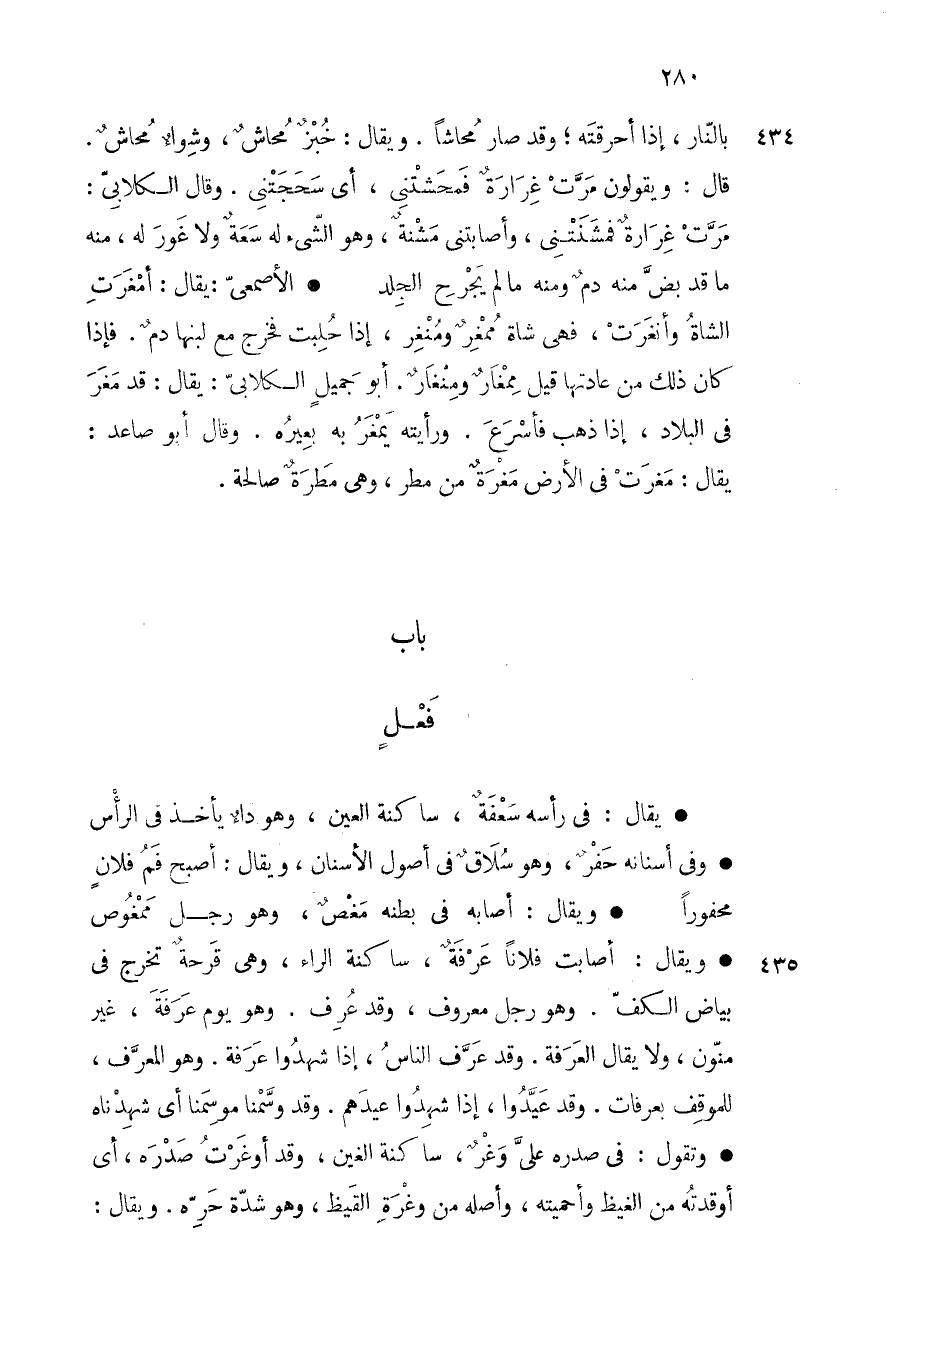 ٢٨٠
٤٣٤ بالنّار ، إذا أحرقتَه ؛ وقد صار مُحاشاً . ويقال : خُبْزٌ مُحاشٌ ، وشِواء مُحاشٌ .
قال : ويقولون مَرَّتْ غِرَارَةٌ فَمحَشتْنِي ، أى سَحَجَتْنِي . وقال الكلابىّ :
مَرَّتْ غِرَارةٌ فمشَنَتْنِى ، وأصابتنى مَشْنةٌ ، وهو الشّىء له سَعَةٌ ولا غَورَ له ، منه
ما قد بضَّ منه دمٌ ومنه ما لم يَجْرحِ الجِلد ● الأصمعىّ : يقال : أمْغَرَتِ
الشاةُ وأنغَرَتْ ، فهى شاة مُمْغِرٌ ومُنْغِر ، إذا حُلِبت فخرج مع لبنها دمٌ . فإذا
كان ذلك من عادتها قيل مِمْغَارٌ ومِنْغَارٌ . أبو جَميلٍ الكلابىّ : يقال : قد مَغَرَ
فى البلاد ، إذا ذهب فأسْرَعَ . ورأيته يَمْغَرُ به بعِيرُه . وقال أبو صاعد :
يقال : مَغَرَتْ فى الأرض مَغْرَةٌ من مطر ، وهى مَطَرَةٌ صالحة .
باب
فَعْلٍ
● يقال : فى رأسه سَعْفَةٌ ، ساكنة العين ، وهو داء يأخذ فى الرأْس
● وفى أسنانه حَفْرٌ ، وهو سُلَاقٌ فى أصول الأسنان ، ويقال : أصبح فَمُ فلانٍ
محفوراً ● ويقال : أصابه فى بطنه مَغْصٌ ، وهو رجل مَمْغُوص
٤٣٥ ● ويقال : أصابت فلاناً عَرْفَةٌ ، ساكنة الراء ، وهى قَرحةٌ تخرج فى
بياض الكفّ . وهو رجل معروف ، وقد عُرِف . وهو يوم عَرَفَةَ ، غير
منّون ، ولا يقال العَرَفة . وقد عَرَّف الناسُ ، إذا شهِدُوا عَرَفة . وهو المعرَّف ،
للموقِف بعرفات . وقد عَيَّدُوا ، إذا شهِدُوا عيدَهم . وقد وسَّمْنا موسِمَنا أى شهِدْناه
● وتقول : فى صدره علىَّ وَغْرٌ ، ساكنة الغين ، وقد أوغَرْتُ صَدْرَه ، أى
أوقدتُه من الغيظ وأحميته ، وأصله من وغْرَةِ القَيظ ، وهو شدّة حَرِّه . ويقال :